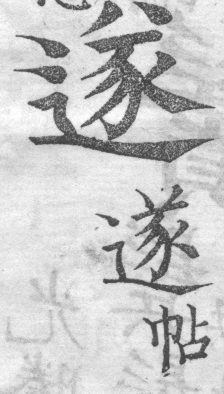 遂
遂帖